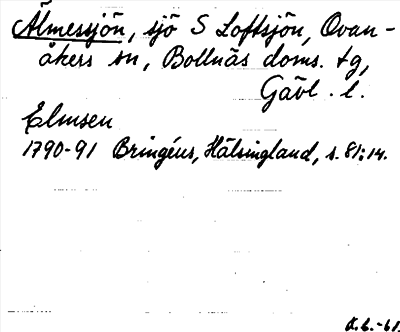 Älmessjön, sjö S Loftsjön, Ovan-
åkers sn, Bollnäs doms. tg,
Gävl. l.
Elmsen
1790-91 Bringéus, Hälsingland, s. 81:14.
K.L.-61